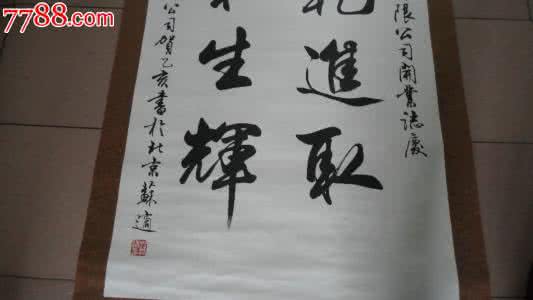 7788.com
限公司開業誌慶
進取
生輝
公司賀乙亥書於北京蘇適